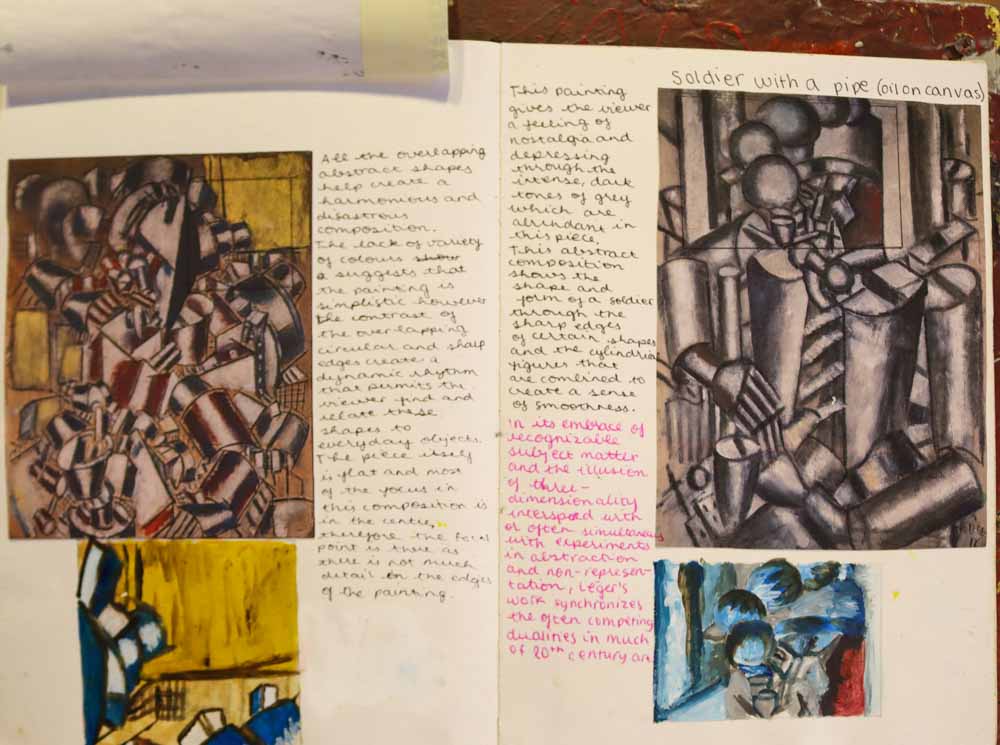 All the overlapping
abstract shapes
help create a
harmonious and
disastrous
composition.
The lack of variety
of colours show
a suggests that
the painting is
simplistic however
the contrast of
the overlapping
circular and sharp
edges create a
dynamic rhythm
that permits the
viewer find and
relate these
shapes to
everyday objects.
The piece itself
is flat and most
of the focus in
this composition is
in the centre,
therefore the focal
point is there as
there is not much
detail on the edges
of the painting.
Soldier with a pipe (oil on canvas)
This painting
gives the viewer
a feeling of
nostalgia and
depressing
through the
intense, dark
tones of grey
which are
abundant in
this piece.
This abstract
composition
shows the
shape and
form of a soldier
through the
sharp edges
of certain shapes
and the cylindrical
figures that
are combined to
create a sense
of smoothness.
In its embrace of
recognizable
subject matter
and the illusion
of three-
dimensionality
interspersed with
or often simultaneous
with experiments
in abstraction
and non-represen-
tation, Léger's
work synchronizes
the often competing
dualities in much
of 20th century art